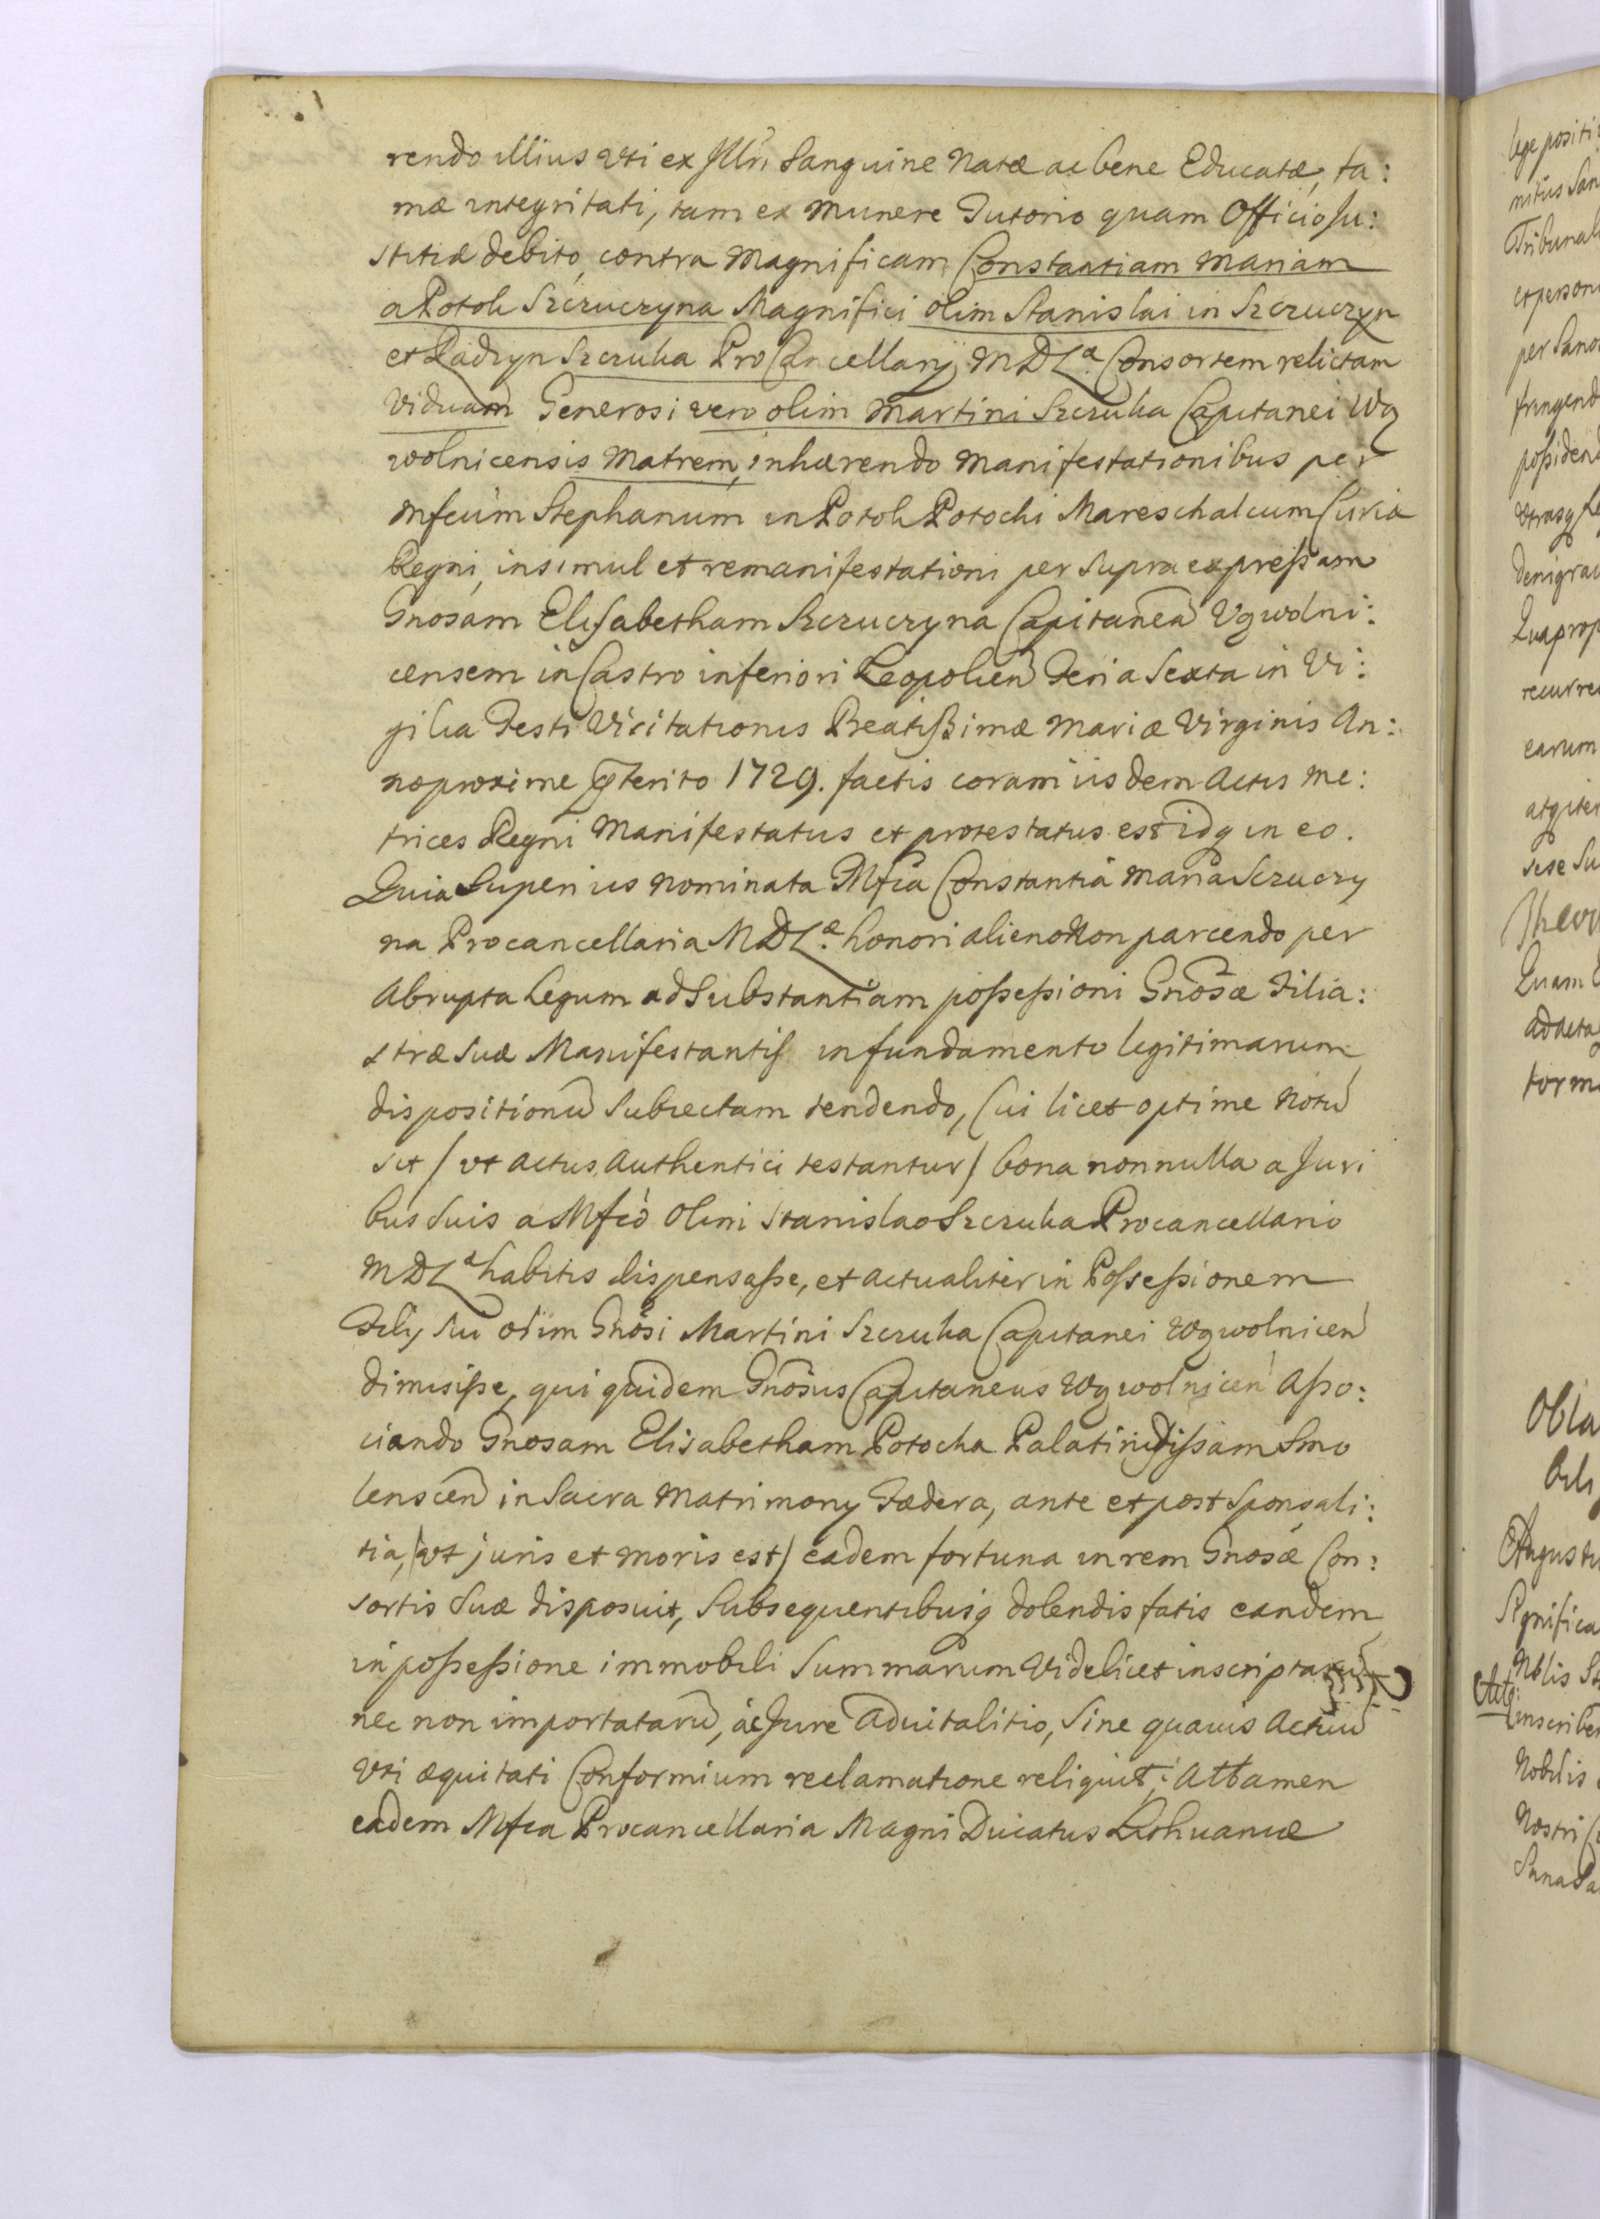 rendo illius vti ex Jllri Sanguine Natæ ac bene Educatæ, fa:
mæ integritati, tam ex munere Tutorio quam Officio Ju:
stitiæ debito, contra Magnificam Constantiam Mariam
a Potok Szczuczyna Magnifici olim Stanislai in Szczuczyn
et Radzyn Szczuka ProCancellarij MDLæ. Consortem relictam
Viduam Generosi vero olim Martini Szczuka Capitanei Wą
wolnicensis Matrem, inhærendo Manifestationibus per
Mfcum Stephanum in Potok Potocki Mareschalcum Curiæ
Regni, insimul et remanifestationi per supra expressam
Gnosam Elisabetham Szczuczyna Capitaneã Vąwolni:
censem in Castro inferiori Leopolien Feria Sexta in Vi:
gilia Festi Visitationis Beatissimæ Mariæ Virginis An:
no proxime prterito 1729. factis coram iisdem Actis Me:
trices Regni Manifestatus et protestatus est idq in eo.
Quia Superius nominata Mfca Constantia Maria Szczuczy
na Procancellaria MDLæ. honori alieno Non parcendo per
Abrupta Legum ad Substantiam possessioni Gnosæ Filia:
stræ suæ Manifestantis in fundamento legitimarum
dispositionu subiectam tendendo, Cui licet optime Notu
sit / vt Actus Authentici testantur / bona nonnulla a Juri
bus Suis a Mfco Olim Stanislao Szczuka Procancellario
MDLæ habitis dispensasse, et actualiter in Possessionem
Filij sui olim Gnosi Martini Szczuka Capitanei Wąwolnicen
dimisisse, qui quidem Gnosus Capitaneus Wąwolnicen Asso:
ciando Gnosam Elisabetham Potocka Palatinidissam Smo
lenscen in Sacra Matrimonij Fædera, ante et post Sponsali:
tia, / vt juris et moris est / eadem fortuna in rem Gnosæ Con:
sortis Suæ disposuit, Subsequentibusq dolendis fatis eandem
in possessione immobili Summarum Videlicet inscriptaru
nec non importataru, ac Jure Aduitalitio, Sine quauis Actuu
Vti æquitati Conformium reclamatione reliquit; Attamen
eadem Mfca Procancellaria Magni Ducatus Lithuaniæ